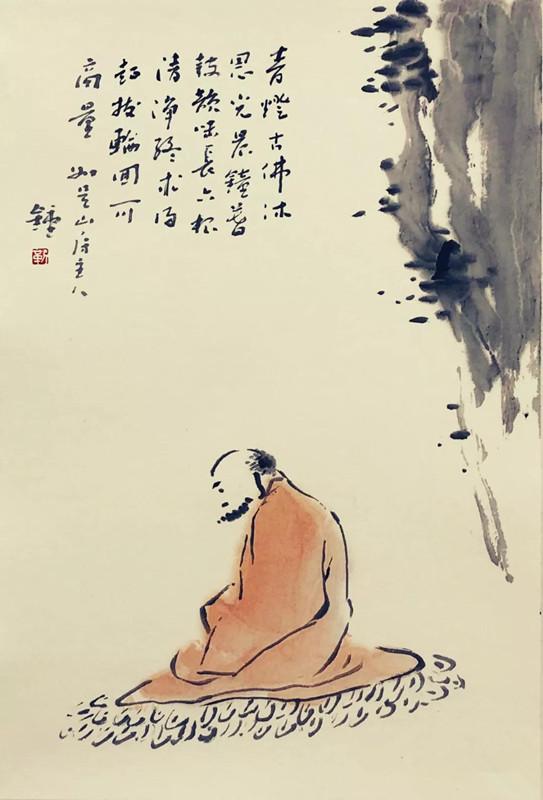 青燈古佛沐
恩光晨鐘暮
鼓韻味長六根
清淨終求得
超拔輪回可
商量 如是山房主人
鐘